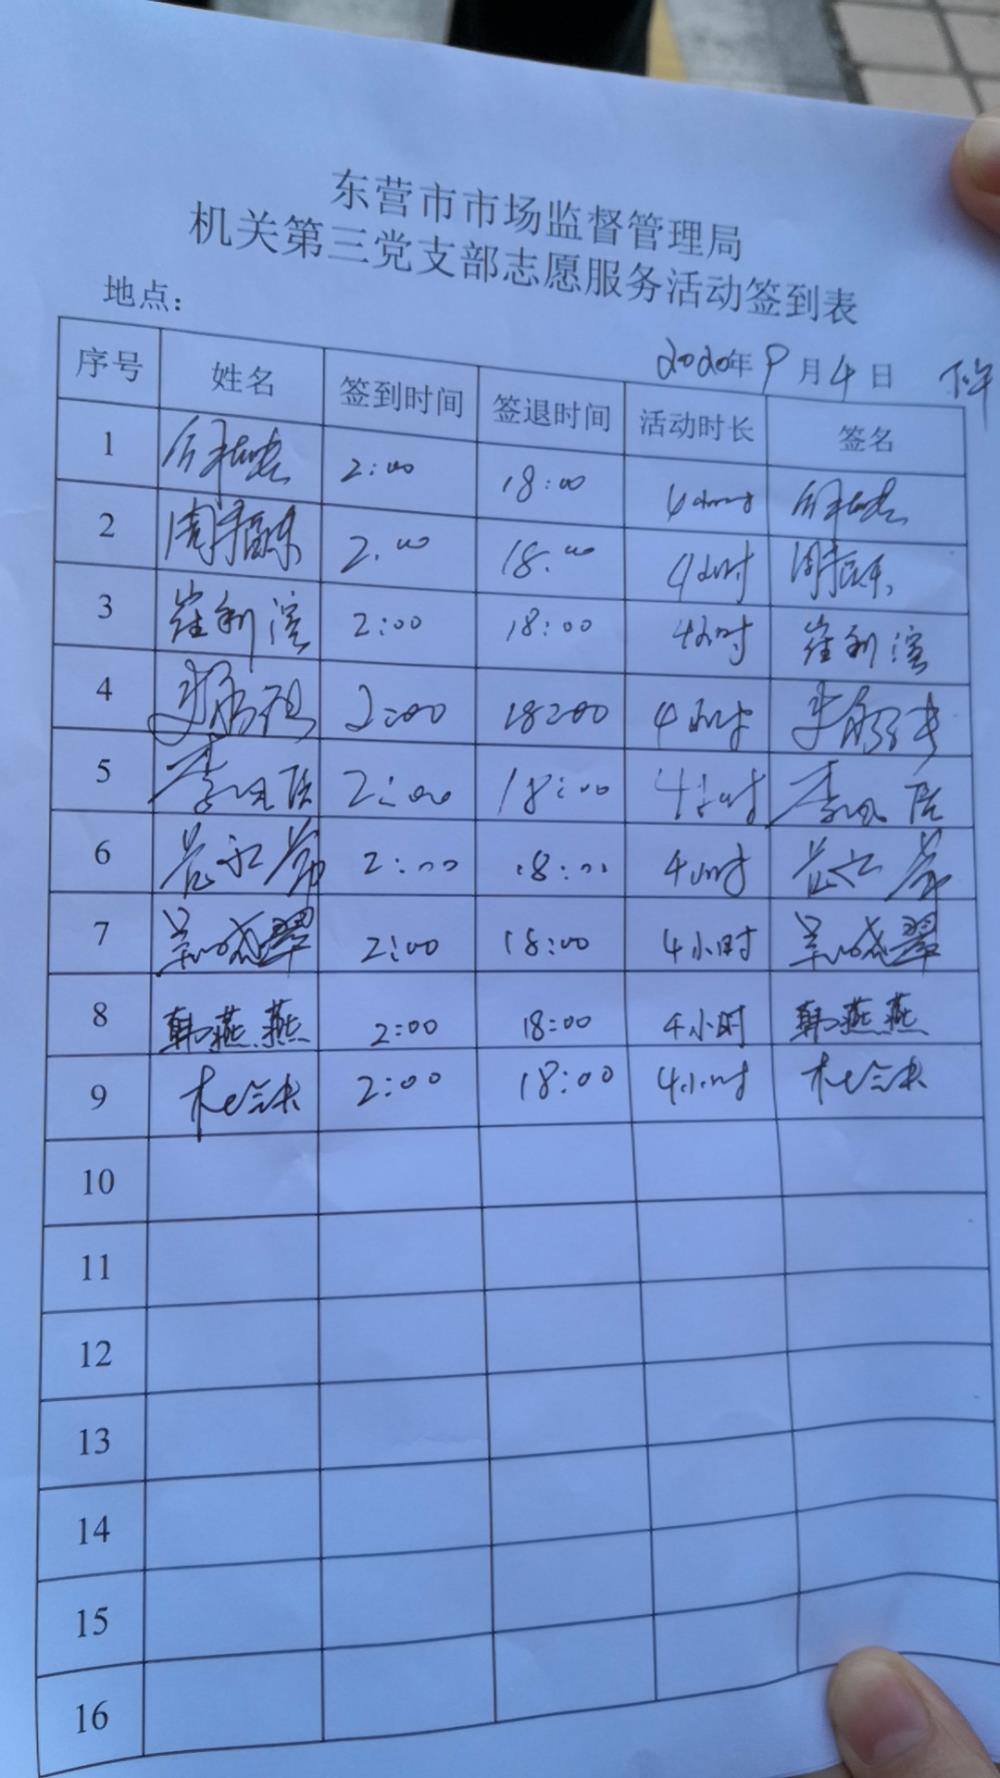 东营市市场监督管理局
机关第三党支部志愿服务活动签到表
地点：
2020年9月4日 下午
序号 姓名 签到时间 签退时间 活动时长 签名
1 2:00 18:00 4小时
2 2:00 18:00 4小时
3 崔利滨 2:00 18:00 4小时 崔利滨
4 2:00 18:00 4小时
5 2:00 18:00 4小时
6 2:00 18:00 4小时
7 2:00 18:00 4小时
8 韩燕燕 2:00 18:00 4小时 韩燕燕
9 2:00 18:00 4小时
10
11
12
13
14
15
16